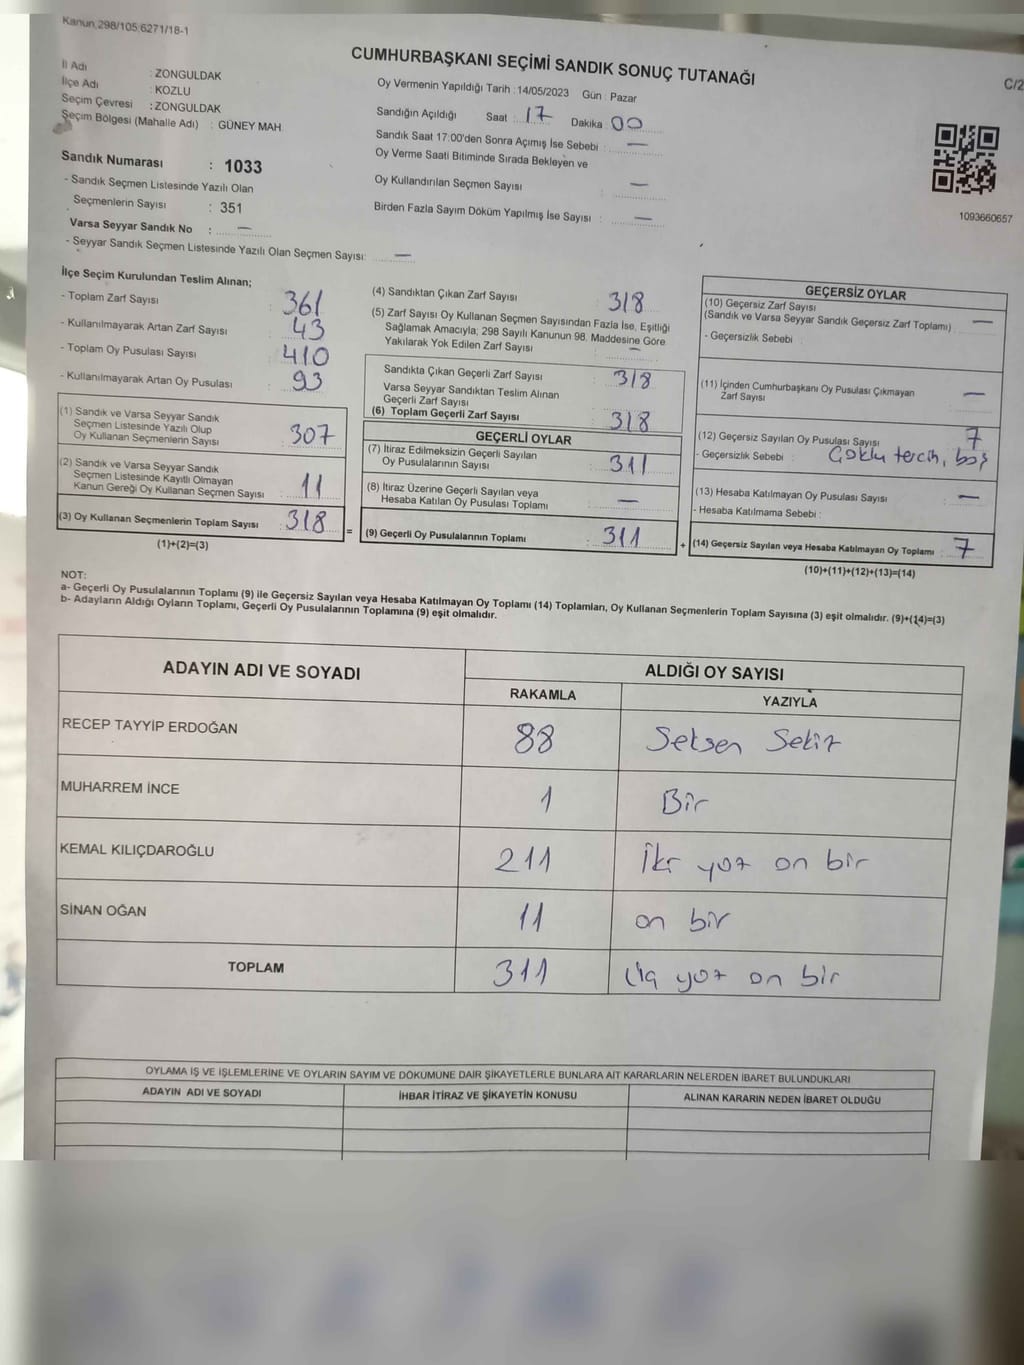 Kanun 298/105 6271/18-1
CUMHURBAŞKANI SEÇİMİ SANDIK SONUÇ TUTANAĞI
C/2
İl Adı : ZONGULDAK
İlçe Adı : KOZLU
Seçim Çevresi : ZONGULDAK
Seçim Bölgesi (Mahalle Adı) : GÜNEY MAH.
Oy Vermenin Yapıldığı Tarih : 14/05/2023 Gün : Pazar
Sandığın Açıldığı Saat : 17 Dakika : 00
Sandık Saat 17:00'den Sonra Açımış İse Sebebi : —
Oy Verme Saati Bitiminde Sırada Bekleyen ve
Oy Kullandırılan Seçmen Sayısı : —
Birden Fazla Sayım Döküm Yapılmış İse Sayısı : —
1093660657
Sandık Numarası : 1033
- Sandık Seçmen Listesinde Yazılı Olan
Seçmenlerin Sayısı : 351
Varsa Seyyar Sandık No : —
- Seyyar Sandık Seçmen Listesinde Yazılı Olan Seçmen Sayısı: —
İlçe Seçim Kurulundan Teslim Alınan;
- Toplam Zarf Sayısı : 361
- Kullanılmayarak Artan Zarf Sayısı : 43
- Toplam Oy Pusulası Sayısı : 410
- Kullanılmayarak Artan Oy Pusulası : 93
(1) Sandık ve Varsa Seyyar Sandık
Seçmen Listesinde Yazılı Olup
Oy Kullanan Seçmenlerin Sayısı : 307
(2) Sandık ve Varsa Seyyar Sandık
Seçmen Listesinde Kayıtlı Olmayan
Kanun Gereği Oy Kullanan Seçmen Sayısı : 11
(3) Oy Kullanan Seçmenlerin Toplam Sayısı : 318 =
(1)+(2)=(3)
(4) Sandıktan Çıkan Zarf Sayısı : 318
(5) Zarf Sayısı Oy Kullanan Seçmen Sayısından Fazla İse, Eşitliği
Sağlamak Amacıyla; 298 Sayılı Kanunun 98. Maddesine Göre
Yakılarak Yok Edilen Zarf Sayısı : —
Sandıkta Çıkan Geçerli Zarf Sayısı : 318
Varsa Seyyar Sandıktan Teslim Alınan
Geçerli Zarf Sayısı :
(6) Toplam Geçerli Zarf Sayısı : 318
GEÇERLİ OYLAR
(7) İtiraz Edilmeksizin Geçerli Sayılan
Oy Pusulalarının Sayısı : 311
(8) İtiraz Üzerine Geçerli Sayılan veya
Hesaba Katılan Oy Pusulası Toplamı : —
(9) Geçerli Oy Pusulalarının Toplamı : 311 +
GEÇERSİZ OYLAR
(10) Geçersiz Zarf Sayısı
(Sandık ve Varsa Seyyar Sandık Geçersiz Zarf Toplamı) —
- Geçersizlik Sebebi :
(11) İçinden Cumhurbaşkanı Oy Pusulası Çıkmayan
Zarf Sayısı : —
(12) Geçersiz Sayılan Oy Pusulası Sayısı : 7
- Geçersizlik Sebebi : Çoklu tercih, boş
(13) Hesaba Katılmayan Oy Pusulası Sayısı : —
- Hesaba Katılmama Sebebi :
(14) Geçersiz Sayılan veya Hesaba Katılmayan Oy Toplamı : 7
(10)+(11)+(12)+(13)=(14)
NOT:
a- Geçerli Oy Pusulalarının Toplamı (9) ile Geçersiz Sayılan veya Hesaba Katılmayan Oy Toplamı (14) Toplamları, Oy Kullanan Seçmenlerin Toplam Sayısına (3) eşit olmalıdır. (9)+(14)=(3)
b- Adayların Aldığı Oyların Toplamı, Geçerli Oy Pusulalarının Toplamına (9) eşit olmalıdır.
ADAYIN ADI VE SOYADI ALDIĞI OY SAYISI
RAKAMLA YAZIYLA
RECEP TAYYİP ERDOĞAN 88 Seksen Sekiz
MUHARREM İNCE 1 Bir
KEMAL KILIÇDAROĞLU 211 İki yüz on bir
SİNAN OĞAN 11 on bir
TOPLAM 311 Üç yüz on bir
OYLAMA İŞ VE İŞLEMLERİNE VE OYLARIN SAYIM VE DÖKÜMÜNE DAİR ŞİKAYETLERLE BUNLARA AİT KARARLARIN NELERDEN İBARET BULUNDUKLARI
ADAYIN ADI VE SOYADI İHBAR İTİRAZ VE ŞİKAYETİN KONUSU ALINAN KARARIN NEDEN İBARET OLDUĞU